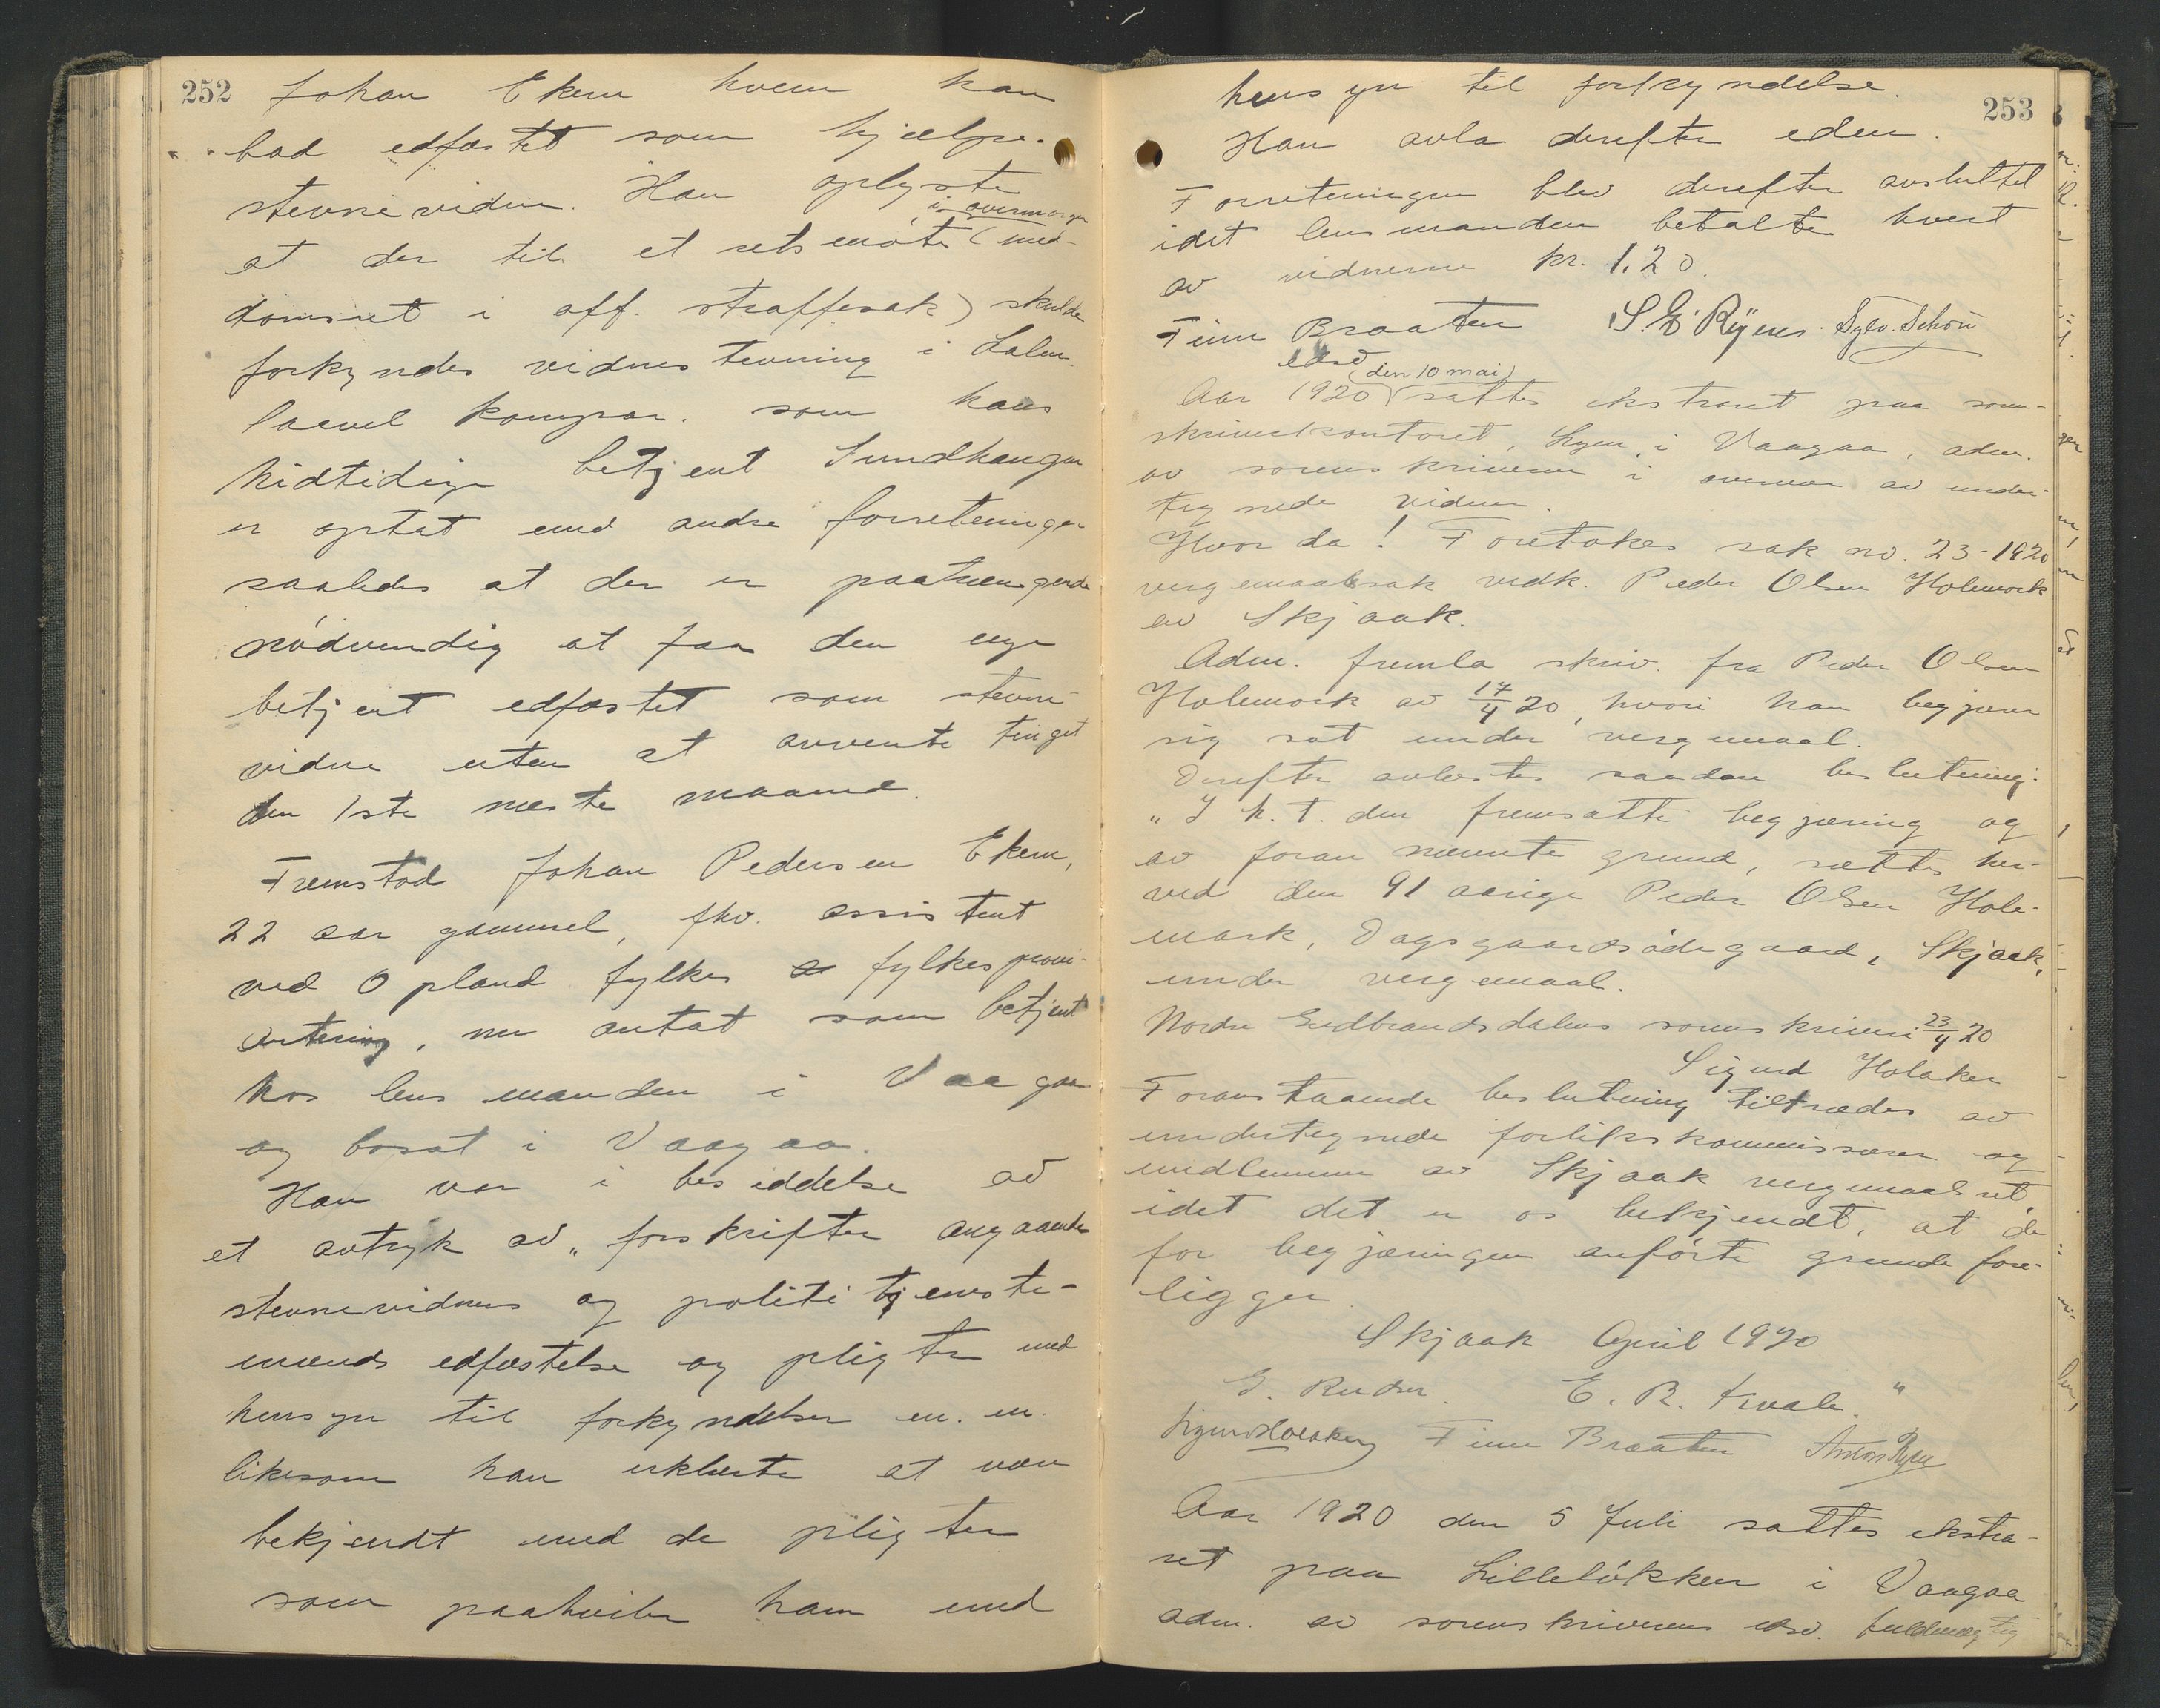 252
Johan Ekern hvem han
bad edfæstet som hjælpe-
stevnevidne. Han oplyste
i overmorgen
at der til et retsmøte (med-
domsret i off. straffesak) skulde
forkyndes vidnestevning i Lalm
laavel kompar. som hans
hidtidige betjent Sundhaugen
er optat med andre forretninger
saaledes at der er paatrængende
nødvendig at faa den nye
betjent edfæstet som stevne-
vidne uten at avvente tinget
den 1ste næste maaned.
Fremstod Johan Pedersen Ekern,
22 aar gammel, fhv. assistent
ved Opland fylkes fylkesprovi-
antering, nu antat som betjent
hos lensmanden i Vaagaa
og bosat i Vaagaa.
Han var i besiddelse av
et avtryk av „forskrifter angaaende
stevnevidners og politi tjeneste-
mænds edfæstelse og pligter med
hensyn til forkyndelser m. m.
likesom han erklærte at være
bekjendt med de pligter
som paahviler ham med
253
hensyn til forkyndelse.
Han avla derefter eden.
Forretningen blev derefter avsluttet
idet lensmanden betalte hvert
av vidnerne kr. 1.20.
Finn Braaten S. E. Ryen Sylv. Schou
edsv.
(den 10 mai)
Aar 1920 sattes ekstraret paa soren-
skriverkontoret, Lyen i Vaagaa, adm.
av sorenskriveren i overvær av under-
tegnede vidner.
Hvor da! Foretokes sak no. 23-1920
vergemaalssak vedk. Peder Olsen Holemork
av Skjaak.
Adm. fremla skriv. fra Peder Olsen
Holemork av 17/4 20, hvori han begjærer
sig sat under vergemaal.
Derefter avlæstes saadan beslutning:
„I h. t. den fremsatte begjæring og
av foran nævnte grund, sættes her-
ved den 91 aarige Peder Olsen Hole-
mark, Dagsgaardsødegaard, Skjaak,
under vergemaal.
Nordre Gudbrandsdalens sorenskriveri 23/4 20
Sigurd Holaker
Foranstaaende beslutning tiltrædes av
undertegnede forlikskommissærer og
medlemmer av Skjaak vergemaalsret,
idet det er os bekjendt, at de
for begjæringen anførte grunde fore-
ligger
Skjaak April 1920
E. R. Kvale. "
Sigurd Holaker Finn Braaten Anton Ryen
Aar 1920 den 5 Juli sattes ekstra-
ret paa Lilleløkken i Vaagaa
adm. av sorenskriverens edsv. fuldmægtig